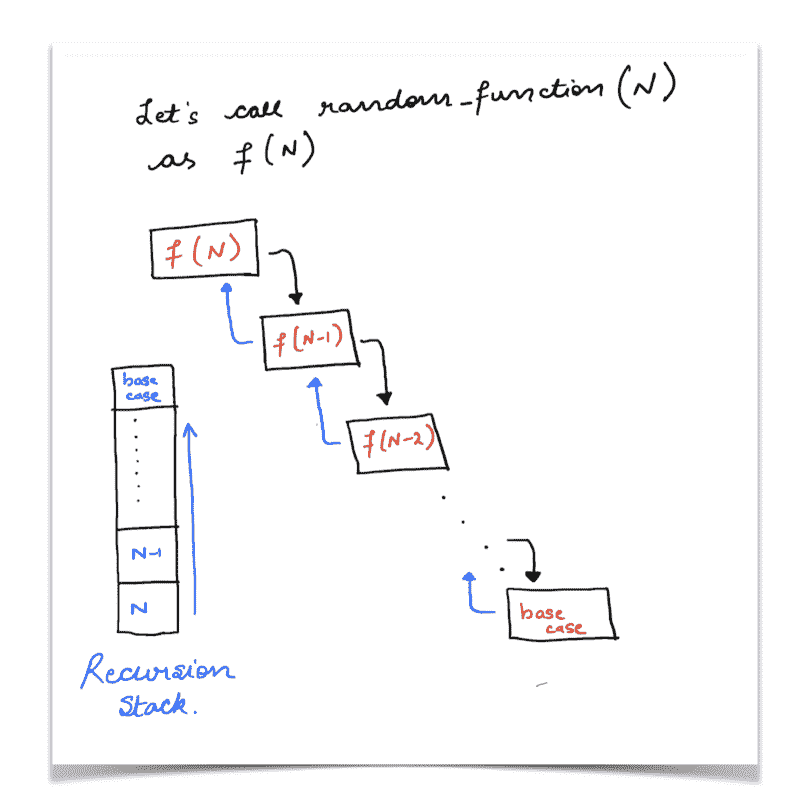 Let's call random_function(N)
as f(N)
f(N)
f(N-1)
f(N-2)
base
case
base
case
N-1
N
Recursion
Stack.